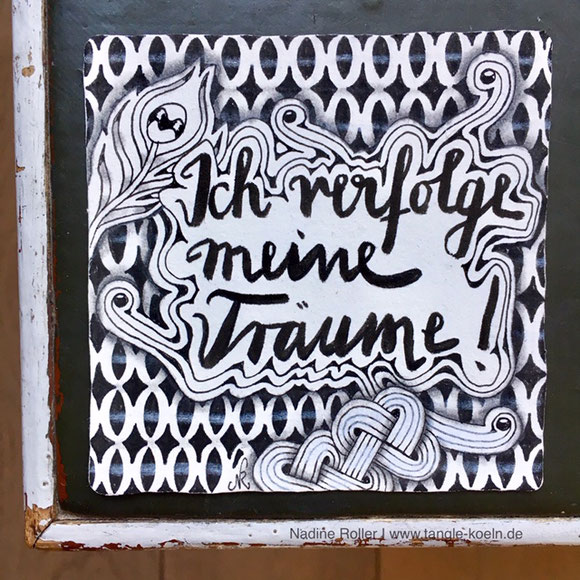 Ich verfolge
meine
Träume!
NR
Nadine Roller | www.tangle-koeln.de